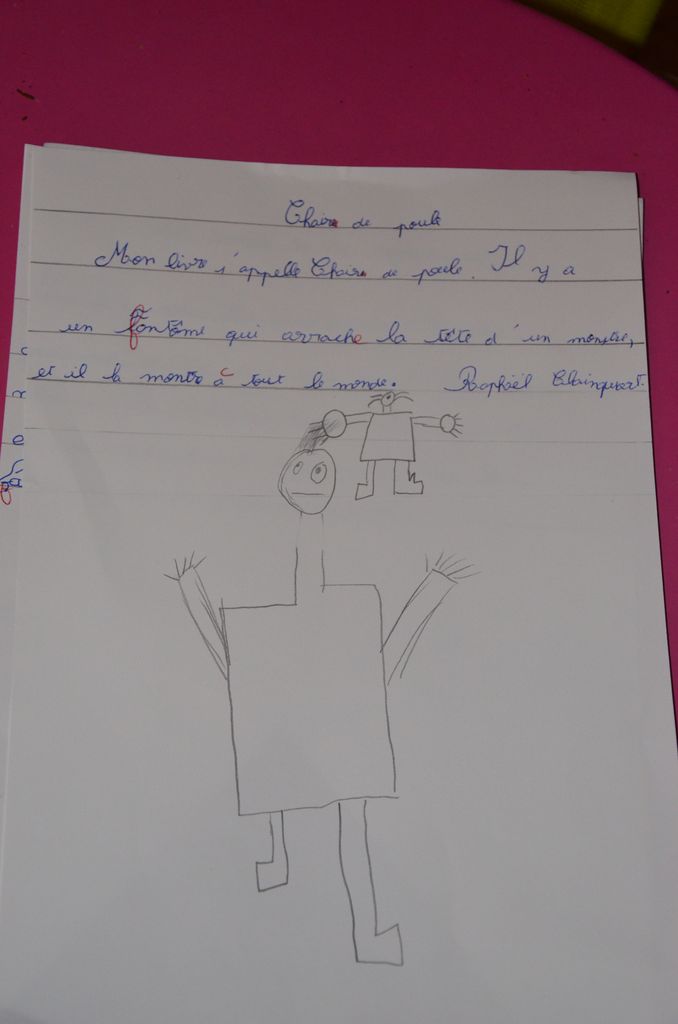 Chair de poule
Mon livre s'appelle Chair de poule. Il y a
un fantôme qui arrache la tête d'un monstre,
et il la montre à tout le monde. Raphaël